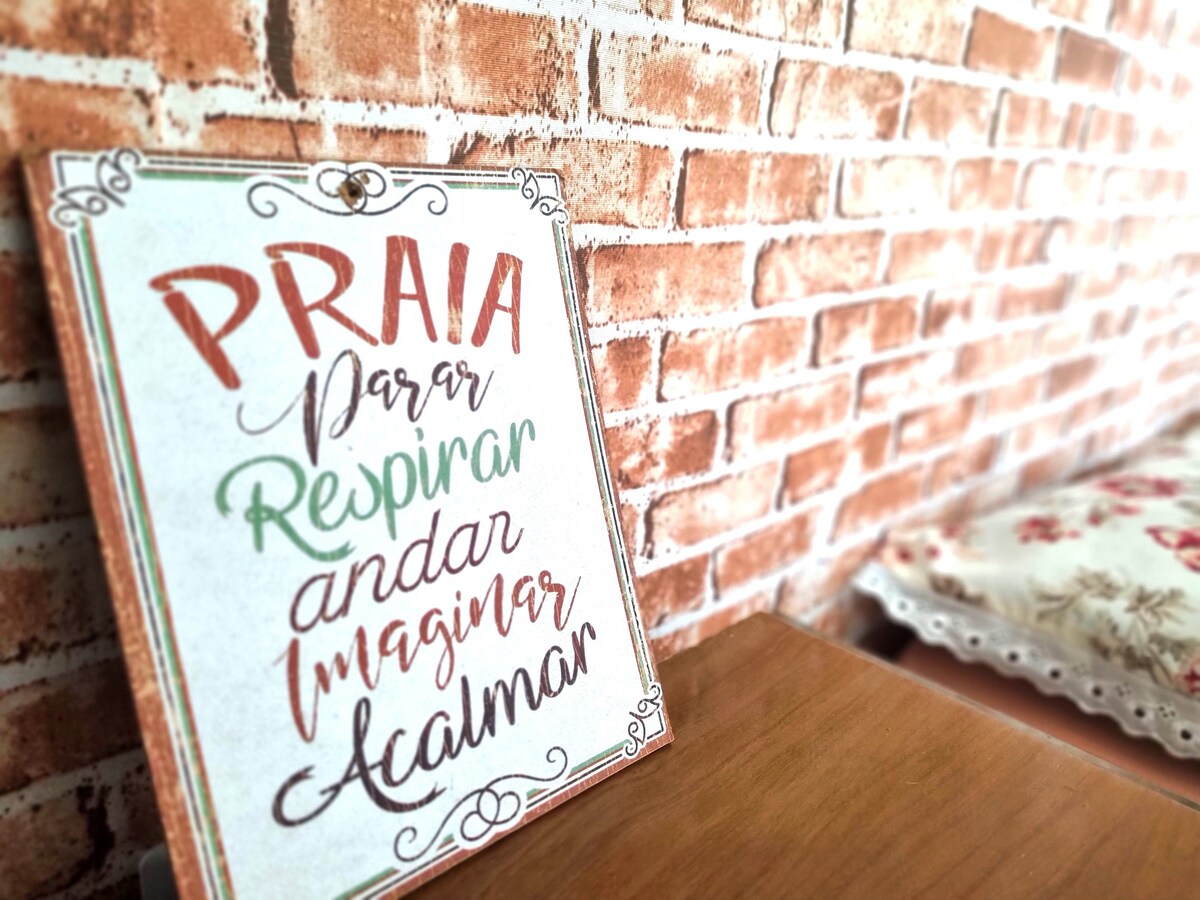 PRAIA
Parar
Respirar
andar
Imaginar
Acalmar